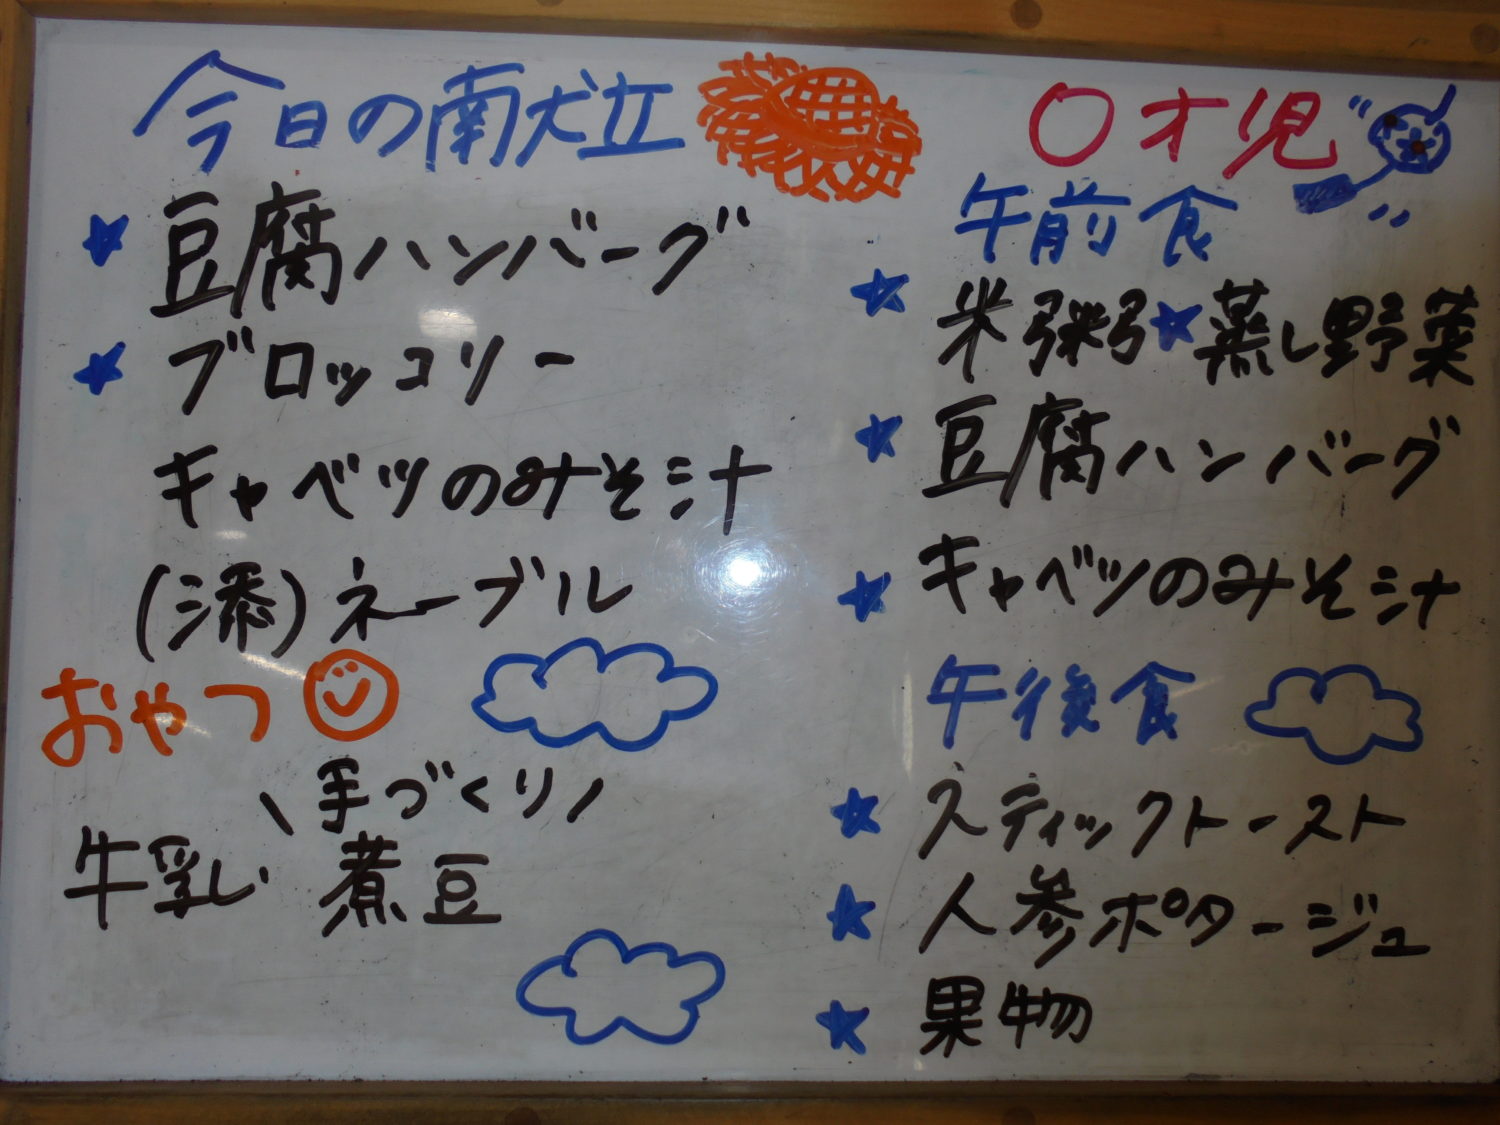 今日の献立
豆腐ハンバーグ
ブロッコリー
キャベツのみそ汁
(添)ネーブル
おやつ
\手づくり/
牛乳 煮豆
〇才児
午前食
米粥★蒸し野菜
豆腐ハンバーグ
キャベツのみそ汁
午後食
スティックトースト
人参ポタージュ
果物